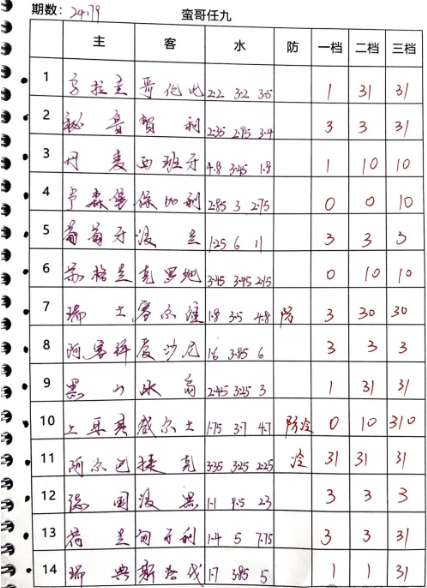 期数: 24179 蛮哥任九
主 客 水 防 一档 二档 三档
1 乌拉圭 哥伦比 2.2 3.2 3.5 1 31 31
2 秘鲁 智利 2.35 2.95 3.4 3 3 31
3 丹麦 西班牙 4.8 3.45 1.8 1 10 10
4 卢森堡 保加利 2.85 3 2.75 0 0 10
5 葡萄牙 波兰 1.25 6 11 3 3 3
6 苏格兰 克罗地 3.45 3.45 2.15 0 10 10
7 瑞士 塞尔维 1.8 3.5 4.8 防 3 30 30
8 阿塞拜 爱沙尼 1.6 3.85 6 3 3 3
9 黑山 冰岛 2.45 3.25 3 1 31 31
10 土耳其 威尔士 1.75 3.7 4.7 防冷 0 10 310
11 阿尔巴 捷克 3.35 3.25 2.25 冷 31 31 31
12 德国 波黑 1.1 9.5 23 3 3 3
13 荷兰 匈牙利 1.4 5 7.75 3 3 31
14 瑞典 斯洛伐 1.7 3.85 5 1 1 31